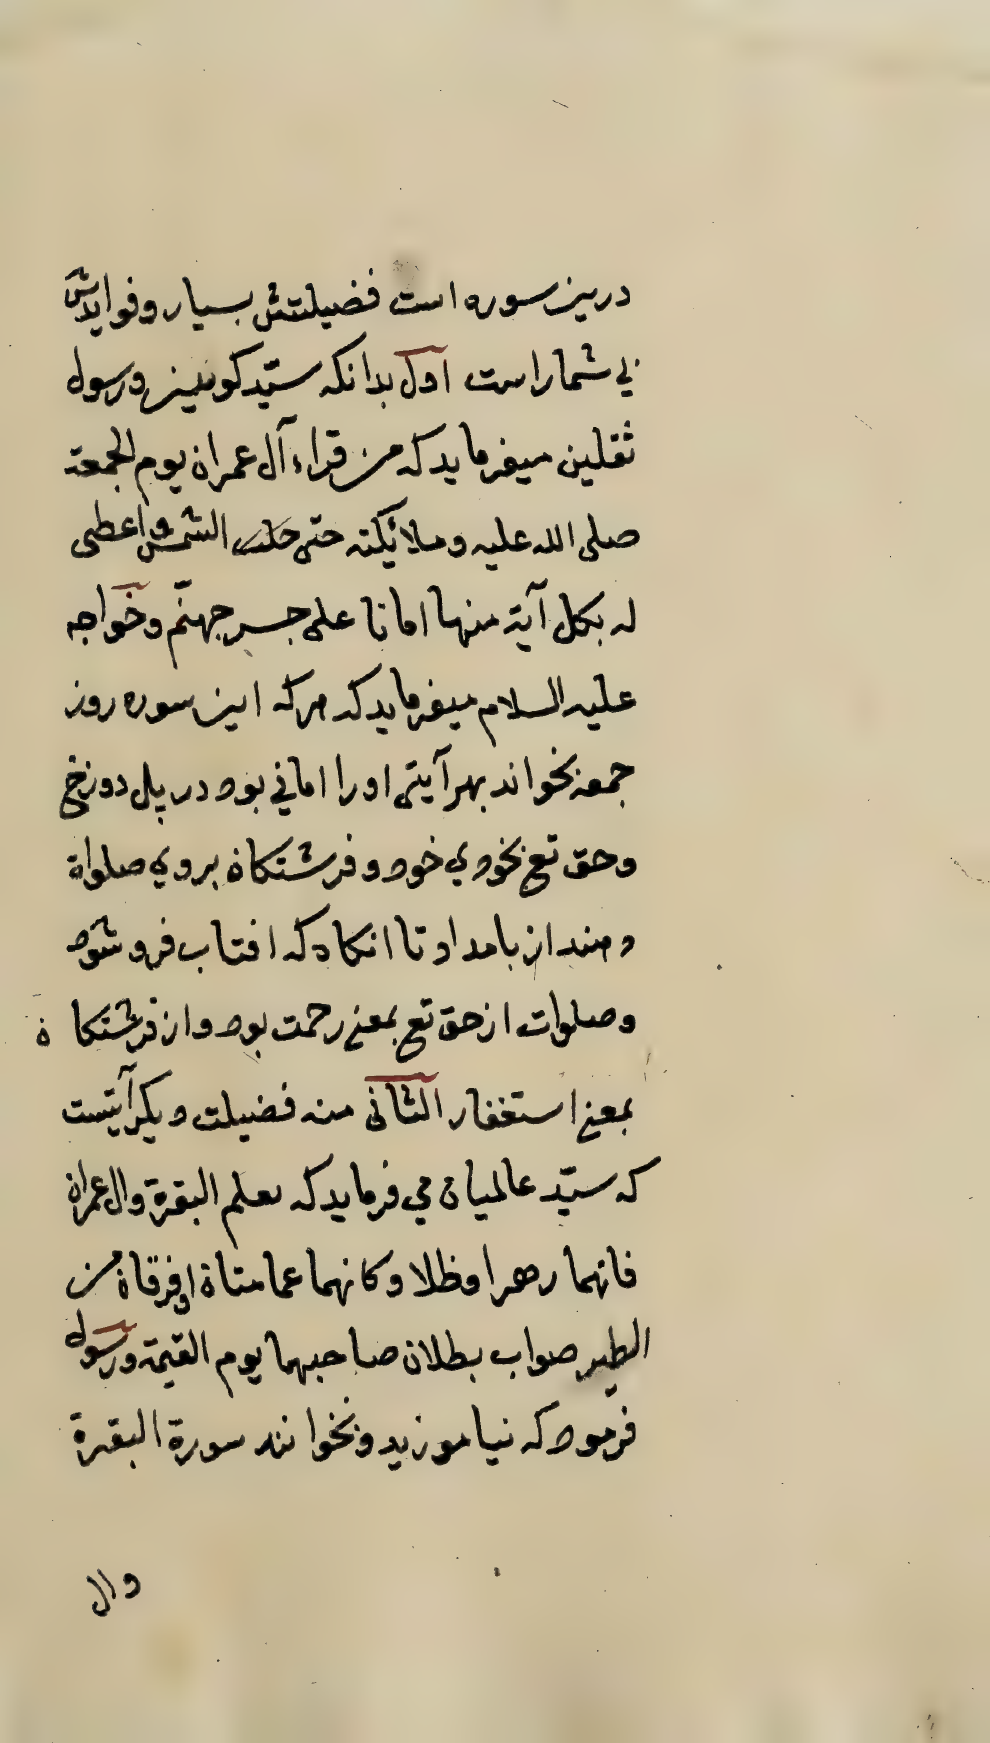 درین سوره است فضیلتش بسیار و فوایدش
بی شمار است اول بدانکه سیّد کونین و رسول
ثقلین میفرماید که من قراء آل عمران یوم الجمعة
صلی الله علیه و ملائکته حتّی الشمس و اعطی
له بکل آیة منها امانا علی جسر جهنّم و خواجه
علیه السلام میفرماید که هرکه این سوره روز
جمعه بخواند بهر آیتی او را امانی بود در پل دوزخ
و حق تع بخودی خود و فرشتکان بروی صلواة
دهند از بامداد تا انکاه که افتاب فرو شود
و صلوات از حق تع بمعنی رحمت بود و از فرشتکان
بمعنی استغفار الثانی منه فضیلت دیکر آیتست
که سیّد عالمیان می فرماید که تعلم البقرة وال عمران
فانهما رهرا وظلا وکانهما عمامتان اوفرقان من
الطیر صواب بطلان صاحبهما یوم القیمة و رسول
فرمود که نیاموزید و نخوانند سورة البقرة
وال